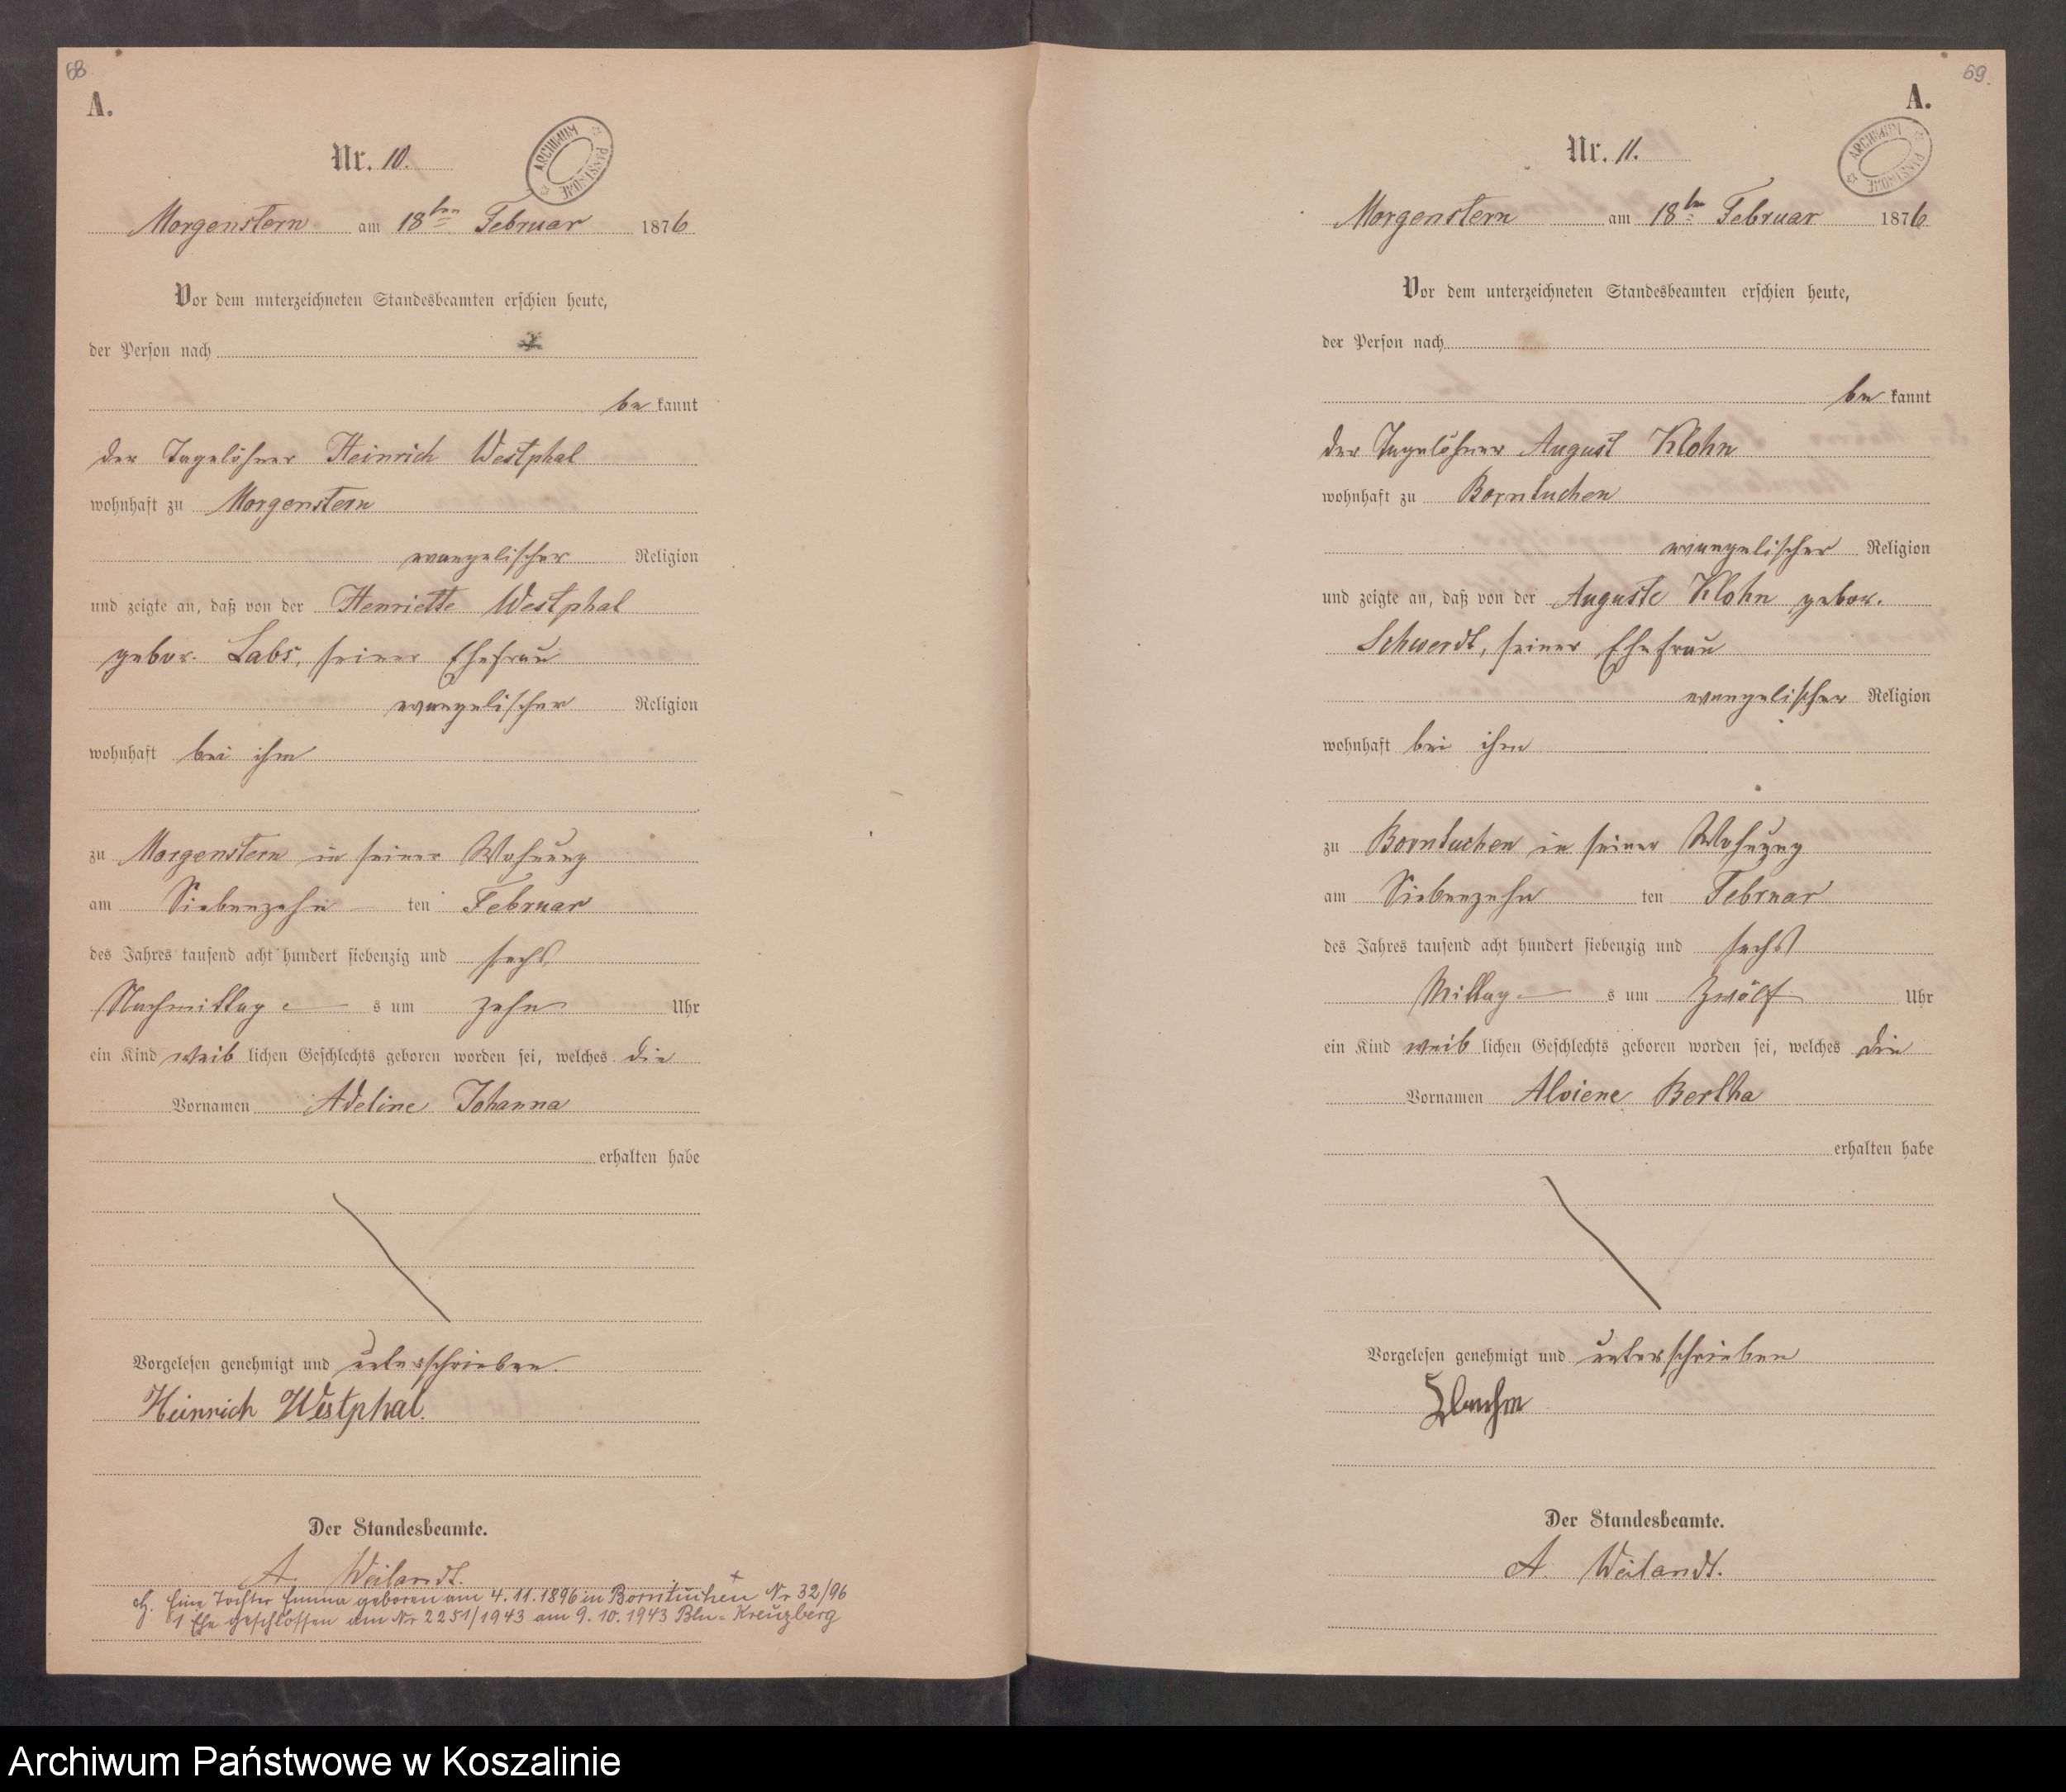 68
A.
ARCHIWUM PAŃSTWOWE
Nr. 10.
Morgenstern am 18ten Februar 1876
Vor dem unterzeichneten Standesbeamten erschien heute,
der Person nach
be kannt
der Tagelöhner Heinrich Westphal
wohnhaft zu Morgenstern
evangelischer Religion
und zeigte an, daß von der Henriette Westphal
gebor. Labs, seiner Ehefrau
evangelischer Religion
wohnhaft bei ihm
zu Morgenstern in seiner Wohnung
am Siebenzehn ten Februar
des Jahres tausend acht hundert siebenzig und sechs
Nachmittag s um zehn Uhr
ein Kind weib lichen Geschlechts geboren worden sei, welches die
Vornamen Adeline Johanna
erhalten habe
Vorgelesen genehmigt und unterschrieben.
Heinrich Westphal.
Der Standesbeamte.
A. Weilandt.
Eine Tochter Emma geboren am 4.11.1896 in Borntuchen Nr 32/96
1 Ehe geschlossen am Nr 2251/1943 am 9.10.1943 Bln-Kreuzberg
69.
A.
ARCHIWUM PAŃSTWOWE
Nr. 11.
Morgenstern am 18ten Februar 1876
Vor dem unterzeichneten Standesbeamten erschien heute,
der Person nach
be kannt
der Tagelöhner August Klohn
wohnhaft zu Borntuchen
evangelischer Religion
und zeigte an, daß von der Auguste Klohn gebor.
Schwerdt, seiner Ehefrau
evangelischer Religion
wohnhaft bei ihm
zu Borntuchen in seiner Wohnung
am Siebenzehn ten Februar
des Jahres tausend acht hundert siebenzig und sechs
Mittag s um Zwölf Uhr
ein Kind weib lichen Geschlechts geboren worden sei, welches die
Vornamen Alviene Bertha
erhalten habe
Vorgelesen genehmigt und unterschrieben
Der Standesbeamte.
A. Weilandt.
Archiwum Państwowe w Koszalinie